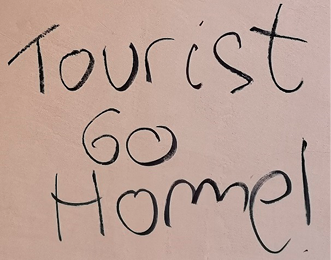 Tourist
Go
Home!